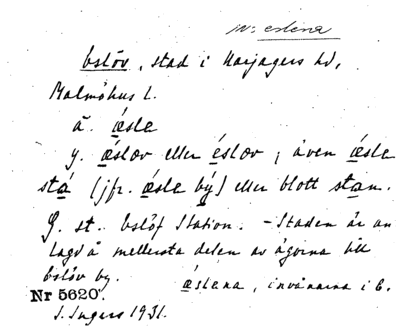 jfr. eslena
Eslöv, stad i Harjagers hd,
Malmöhus l.
ä. ésle
y. éslov eller éslov; även ésle
stá (jfr. ésle bý) eller blott stan.
G. st. Eslöf Station. - Staden är an
lagd å mellersta delen av ägorna till
Eslöv by.
éslena, invånarna i E.
Nr 5620.
I. Ingers 1931.